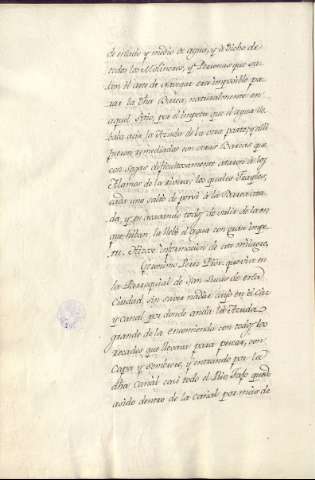 de estado y medio de agua, y à dicho de
todos los Molineros, y Personas que sa-
ben el arte de Navegar era imposible pa-
rar la dha Barca, naturalmente en
aquel sitio, por el impetu que el agua lle-
baba acia la Azuda de la otra parte, y alli
fueron remediadas con otras Barcas que
con sogas dificultosamente ataron à los
Alamos de la Rivera, los quales
cada uno saltò de por si à la Barca ata-
da, y en acavando todos de salir de la en
que hiban, la llebò el agua con gran impe-
tu. Hizose informacion de este milagro.
Geronimo Perez Flor, que vivia en
la Parroquial de San Lucas de esta
Ciudad, sin saver nadar cayò en el Caz
y canal por donde anda la Azuda
grande de la encomienda con todos los
recados que llevaba para pescar, con
Capa y sombrero, y entrando por la
dha canal casi todo el Rio Tajo quedò
asido dentro de la canal por mas de